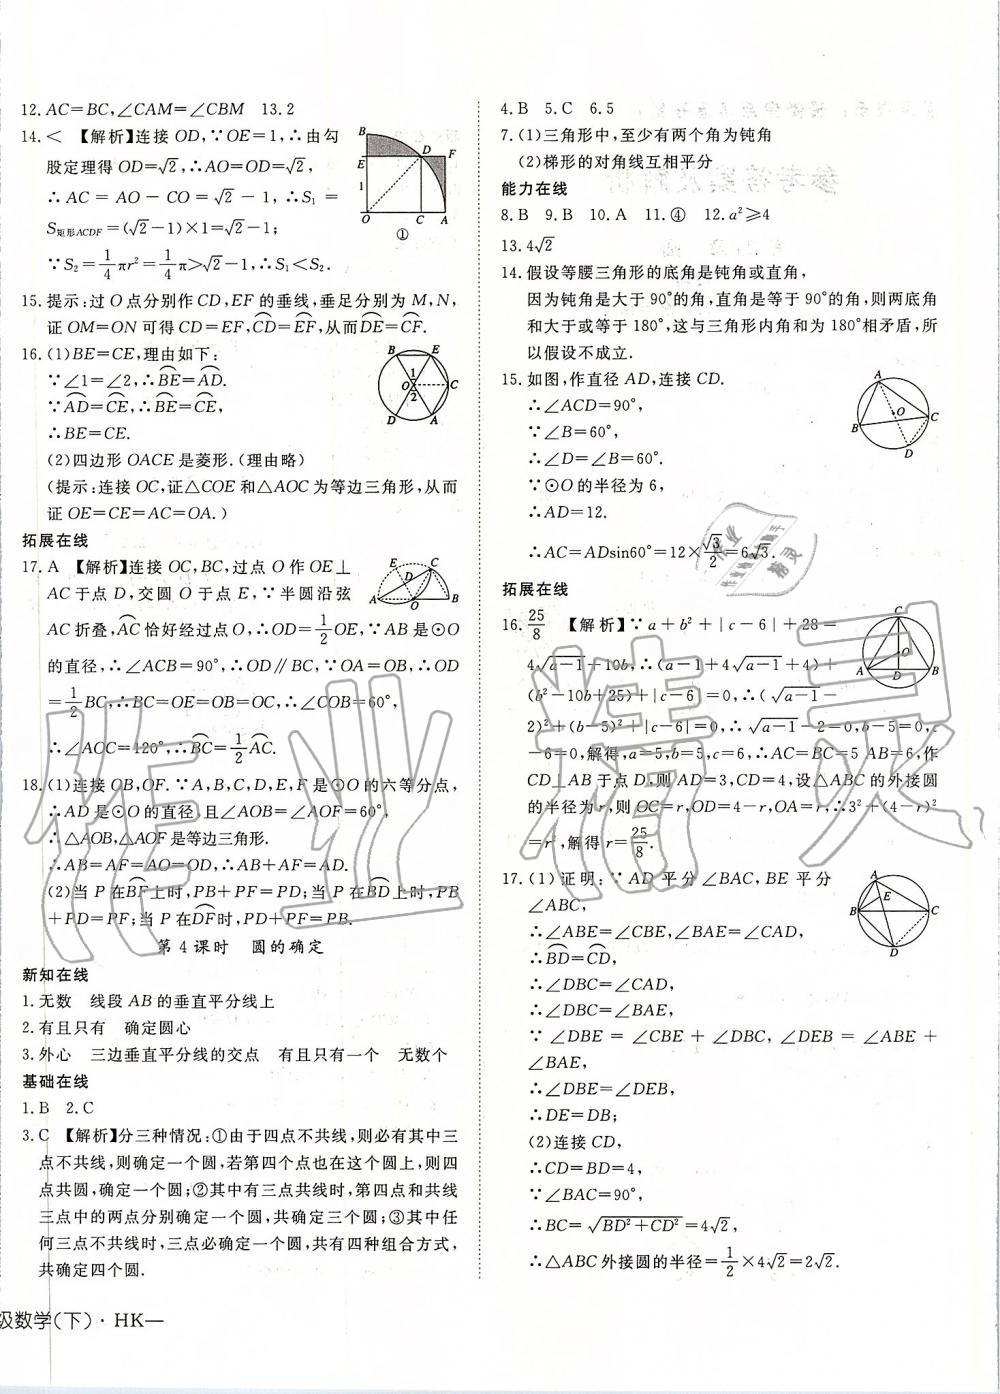 12. AC=BC,∠CAM=∠CBM　13. 2
14. <　【解析】连接 OD,∵OE=1,∴由勾
股定理得 OD=√2,∴AO=OD=√2,
∴AC=AO-CO=√2-1,∴S₁=
S矩形ACDF=(√2-1)×1=√2-1;
∵S₂=1/4πr²=1/4π>√2-1,∴S₁<S₂.
B
E
D
F
1
O
C
A
①
15. 提示:过 O 点分别作 CD,EF 的垂线,垂足分别为 M,N,
证 OM=ON 可得 CD=EF,⌒CD=⌒EF,从而⌒DE=⌒CF.
16. (1)BE=CE,理由如下:
∵∠1=∠2,∴⌒BE=⌒AD.
∵⌒AD=⌒CE,∴⌒BE=⌒CE,
∴BE=CE.
(2)四边形 OACE 是菱形.(理由略)
(提示:连接 OC,证△COE 和△AOC 为等边三角形,从而
证 OE=CE=AC=OA.)
B
E
O
1
2
C
D
A
拓展在线
17. A　【解析】连接 OC,BC,过点 O 作 OE⊥
AC 于点 D,交圆 O 于点 E,∵半圆沿弦
AC 折叠,⌒AC恰好经过点 O,∴OD=1/2OE,∵AB 是⊙O
的直径,∴∠ACB=90°,∴OD∥BC,∵OA=OB,∴OD
=1/2BC,∴BC=OE=OB=OC,∴∠COB=60°,
∴∠AOC=120°,∴⌒BC=1/2⌒AC.
E
C
D
A
O
B
18. (1)连接 OB,OF.∵A,B,C,D,E,F 是⊙O 的六等分点,
∴AD 是⊙O 的直径,且∠AOB=∠AOF=60°,
∴△AOB,△AOF 是等边三角形.
∴AB=AF=AO=OD,∴AB+AF=AD.
(2)当 P 在⌒BF上时,PB+PF=AD;当 P 在⌒BD上时,PB
+PD=PF;当 P 在⌒DF时,PD+PF=PB.
第 4 课时　圆的确定
新知在线
1. 无数　线段 AB 的垂直平分线上
2. 有且只有　确定圆心
3. 外心　三边垂直平分线的交点　有且只有一个　无数个
基础在线
1. B　2. C
3. C　【解析】分三种情况:①由于四点不共线,则必有其中三
点不共线,则确定一个圆,若第四个点也在这个圆上,则四
点共圆,确定一个圆;②其中有三点共线时,第四点和共线
三点中的两点分别确定一个圆,共确定三个圆;③其中任
何三点不共线时,三点必确定一个圆,共有四种组合方式,
共确定四个圆.
级数学(下)·HK—
4. B　5. C　6. 5
7. (1)三角形中,至少有两个角为钝角
(2)梯形的对角线互相平分
能力在线
8. B　9. B　10. A　11. ④　12. a²≥4
13. 4√2
14. 假设等腰三角形的底角是钝角或直角,
因为钝角是大于 90°的角,直角是等于 90°的角,则两底角
和大于或等于 180°,这与三角形内角和为 180°相矛盾,所
以假设不成立.
15. 如图,作直径 AD,连接 CD.
∴∠ACD=90°,
∵∠B=60°,
∴∠D=∠B=60°,
∵⊙O 的半径为 6,
∴AD=12.
∴AC=ADsin60°=12×√3/2=6√3.
A
O
B
C
D
拓展在线
16. 25/8　【解析】∵a+b²+|c-6|+28=
4√a-1+10b,∴(a-1+4√a-1+4)+
(b²-10b+25)+|c-6|=0,∴(√a-1-
2)²+(b-5)²+|c-6|=0,∴√a-1-2=0,b-5=0,c
-6=0,解得,a=5,b=5,c=6,∴AC=BC=5,AB=6,作
CD⊥AB 于点 D.则 AD=3,CD=4,设△ABC 的外接圆
的半径为 r,则 OC=r,OD=4-r,OA=r,∴3²+(4-r)²
=r²,解得 r=25/8.
C
O
A
D
B
17. (1)证明:∵AD 平分∠BAC,BE 平分
∠ABC,
∴∠ABE=∠CBE,∠BAE=∠CAD,
∴⌒BD=⌒CD,
∴∠DBC=∠CAD,
∴∠DBC=∠BAE,
∵∠DBE=∠CBE+∠DBC,∠DEB=∠ABE+
∠BAE,
∴∠DBE=∠DEB,
∴DE=DB;
(2)连接 CD,
∴CD=BD=4,
∵∠BAC=90°,
∴BC=√BD²+CD²=4√2,
∴△ABC 外接圆的半径=1/2×4√2=2√2.
A
E
B
C
D
作业精灵